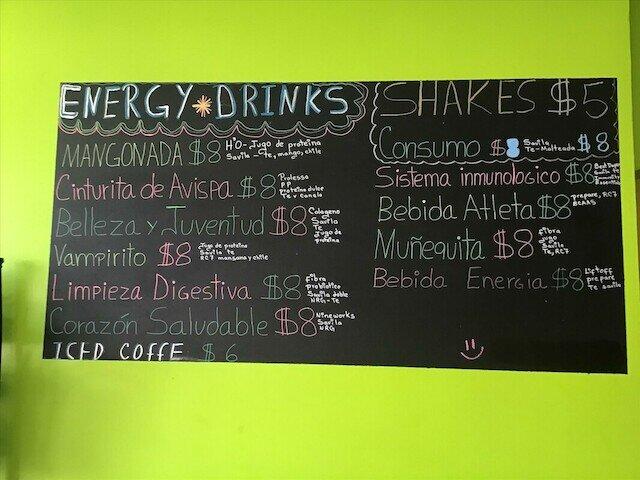 ENERGY DRINKS
MANGONADA $8
H³O-Jugo de proteína
Savila-Te, mango, chile
Cinturita de Avispa $8
Prolesso
PP
proteína dulce
Te v canela
Belleza y Juventud $8
Colageno
Savila
Te
Jugo de
proteína
Vampirito $8
Jugo de proteína
Savila te
RC7 manzana y chile
Limpieza Digestiva $8
Fibra
probiotico
Savila doble
NRG-Te
Corazón Saludable $8
Nineworks
Savila
NRG
ICED COFFE $6
SHAKES $5
Consumo $8
Savila
Te-Malteada
$8
Sistema inmunologico $8
Savila te
Bebida Atleta $8
prepare, RC7
BCAAS
Muñequita $8
fibra
Jugo
Savila
Te, RC7
Bebida Energia $8
Liftoff
prepare
Te savila